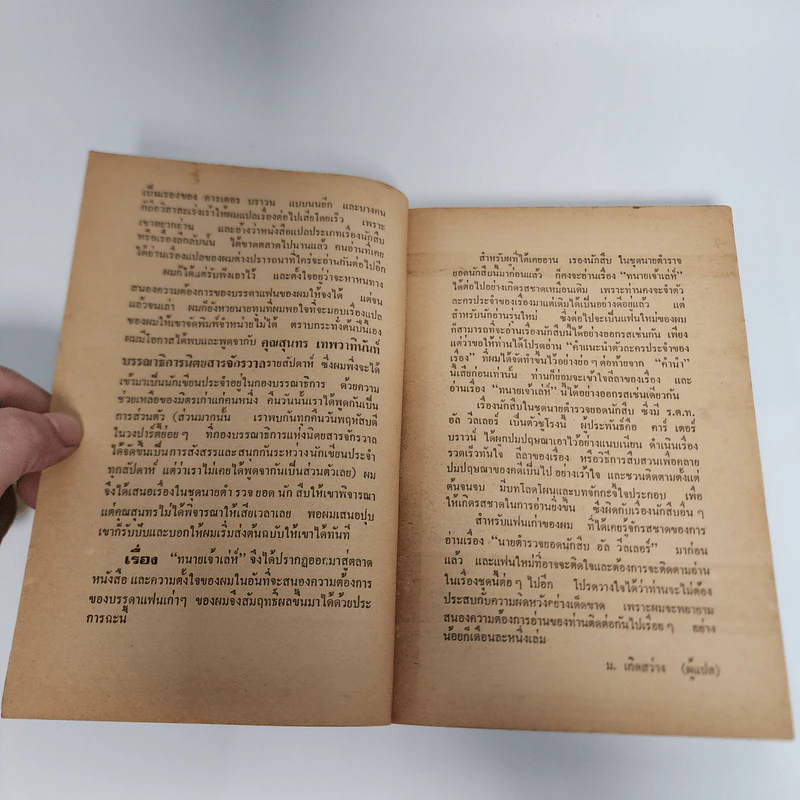 เป็นเรื่องของ คารเตอร บราวน แบบนี้อีก และบางคน
ก็ถือวิสาสะเร่งเร้าให้ผมแปลเรื่องต่อไปเสียโดยเร็ว เพราะ
เขาอยากอ่าน และอ้างว่าหนังสือแปลประเภทเรื่องนักสืบ
หรือเรื่องลึกลับนั้น ได้ขาดตลาดไปนานแล้ว คนอ่านที่เคย
ได้อ่านเรื่องแปลของผมต่างปรารถนาที่ใคร่จะอ่านกันต่อไปอีก
ผมก็ได้แต่รับฟังเอาไว้ และตั้งใจอยู่ว่าจะหาหนทาง
สนองความต้องการของบรรดาแฟนของผมให้จงได้ แต่จน
แล้วจนเล่า ผมก็ยังหานายทุนที่ผมพอใจที่จะมอบเรื่องแปล
ของผมให้เขาจัดพิมพ์จำหน่ายไม่ได้ ตราบกระทั่งต้นปีนี้เอง
ผมมีโอกาสได้พบและพูดจากับ คุณสุนทร เทพวาทีนันท์
บรรณาธิการนิตยสารจักรวาลรายสัปดาห์ ซึ่งผมพึ่งจะได้
เข้ามาเป็นนักเขียนประจำอยู่ในกองบรรณาธิการ ด้วยความ
ช่วยเหลือของมิตรเก่าแก่คนหนึ่ง คืนวันนั้นเราได้พูดกันเป็น
การส่วนตัว (ส่วนมากนั้น เราพบกันทุกคืนวันพฤหัสบดี
ในวงปาร์ตี้ย่อยๆ ที่กองบรรณาธิการแห่งนิตยสารจักรวาล
ได้จัดขึ้นเป็นการสังสรรและสนุกกันระหว่างนักเขียนประจำ
ทุกสัปดาห์ แต่ว่าเราไม่เคยได้พูดจากันเป็นส่วนตัวเลย) ผม
จึงได้เสนอเรื่องในชุดนายตำรวจ ยอด นัก สืบให้เขาพิจารณา
แต่คุณสุนทรไม่ได้พิจารณาให้เสียเวลาเลย พอผมเสนอปุบ
เขาก็รับปั๊บและบอกให้ผมเริ่มส่งต้นฉบับให้เขาได้ทันที
เรื่อง “ทนายเจ้าเล่ห์” จึงได้ปรากฏออกมาสู่ตลาด
หนังสือ และความตั้งใจของผมในอันที่จะสนองความต้องการ
ของบรรดาแฟนเก่าๆ ของผมจึงสัมฤทธิ์ผลขึ้นมาได้ด้วยประ
การฉะนี้
สำหรับผู้ที่ได้เคยอ่าน เรื่องนักสืบ ในชุดนายตำรวจ
ยอดนักสืบนี้มาก่อนแล้ว ก็คงจะอ่านเรื่อง “ทนายเจ้าเล่ห์”
ได้ต่อไปอย่างเกิดรสชาดเหมือนเดิม เพราะท่านคงจะจำตัว
ละครประจำของเรื่องมาแต่เดิมได้เป็นอย่างดีอยู่แล้ว แต่
สำหรับนักอ่านรุ่นใหม่ ซึ่งต่อไปจะเป็นแฟนใหม่ของผม
ก็สามารถที่จะอ่านเรื่องนักสืบนี้ได้อย่างออกรสเช่นกัน เพียง
แต่ว่าขอให้ท่านได้โปรดอ่าน “คำแนะนำตัวละครประจำของ
เรื่อง” ที่ผมได้จัดทำขึ้นไว้อย่างย่อๆ ต่อท้ายจาก “คำนำ”
นี้เสียก่อนเท่านั้น ท่านก็ย่อมจะเข้าใจลีลาของเรื่อง และ
อ่านเรื่อง “ทนายเจ้าเล่ห์” นี้ได้อย่างออกรสเช่นเดียวกัน
เรื่องนักสืบในชุดนายตำรวจยอดนักสืบ ซึ่งมี ร.ต.ท.
อัล วีลเลอร์ เป็นตัวชูโรงนี้ ผู้ประพันธ์คือ คาร์ เตอร์
บราวน์ ได้ผูกปมปฤษณาเอาไว้อย่างแนบเนียน ดำเนินเรื่อง
รวดเร็วทันใจ ลีลาของเรื่อง หรือวิธีการสืบสวนเพื่อคลาย
ปมปฤษณาของคดีเป็นไป อย่างเร้าใจ และชวนติดตามตั้งแต่
ต้นจนจบ มีบทโลดโผนและบทจักกะจี้ใจประกอบ เพื่อ
ให้เกิดรสชาดในการอ่านยิ่งขึ้น ซึ่งผิดกับเรื่องนักสืบอื่นๆ
สำหรับแฟนเก่าของผม ที่ได้เคยรู้จักรสชาดของการ
อ่านเรื่อง “นายตำรวจยอดนักสืบ อัล วีลเลอร์” มาก่อน
แล้ว และแฟนใหม่ที่อาจจะติดใจและต้องการจะติดตามอ่าน
ในเรื่องชุดนี้ต่อๆ ไปอีก โปรดวางใจได้ว่าท่านจะไม่ต้อง
ประสบกับความผิดหวังอย่างเด็ดขาด เพราะผมจะพยายาม
สนองความต้องการอ่านของท่านติดต่อกันไปเรื่อยๆ อย่าง
น้อยก็เดือนละหนึ่งเล่ม
ม. เกิดสว่าง (ผู้แปล)